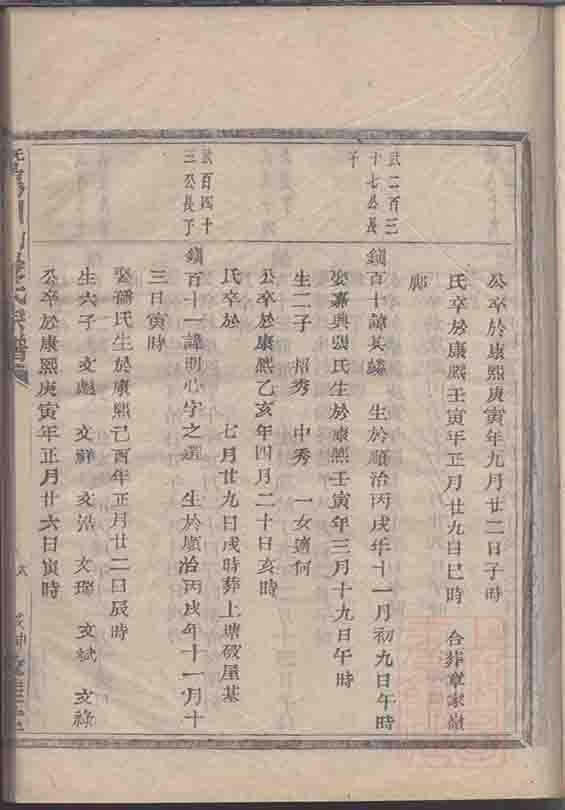 公卒於康熙庚寅年九月廿二日子時
氏卒於康熙壬寅年正月廿九日巳時 合葬章家嶺
廊
武二百三
十七公長
子
鎭百十諱其 生於順治丙戌年十一月初九日午時
娶嘉興張氏生於康熙壬寅年三月十九日午時
生二子 招秀 中秀 一女適何
公卒於康熙乙亥年四月二十日亥時
氏卒於 七月廿九日戌時葬上塘 屋基
武百四十
三公長子
鎭百十一諱明心字之選 生於順治丙戌年十一月十
三日寅時
娶孫氏生於康熙己酉年正月廿二日辰時
生六子 文彪 文祥 文浩 文瑞 文斌 文祿
公卒於康熙庚寅年正月廿六日寅時
氏宗譜